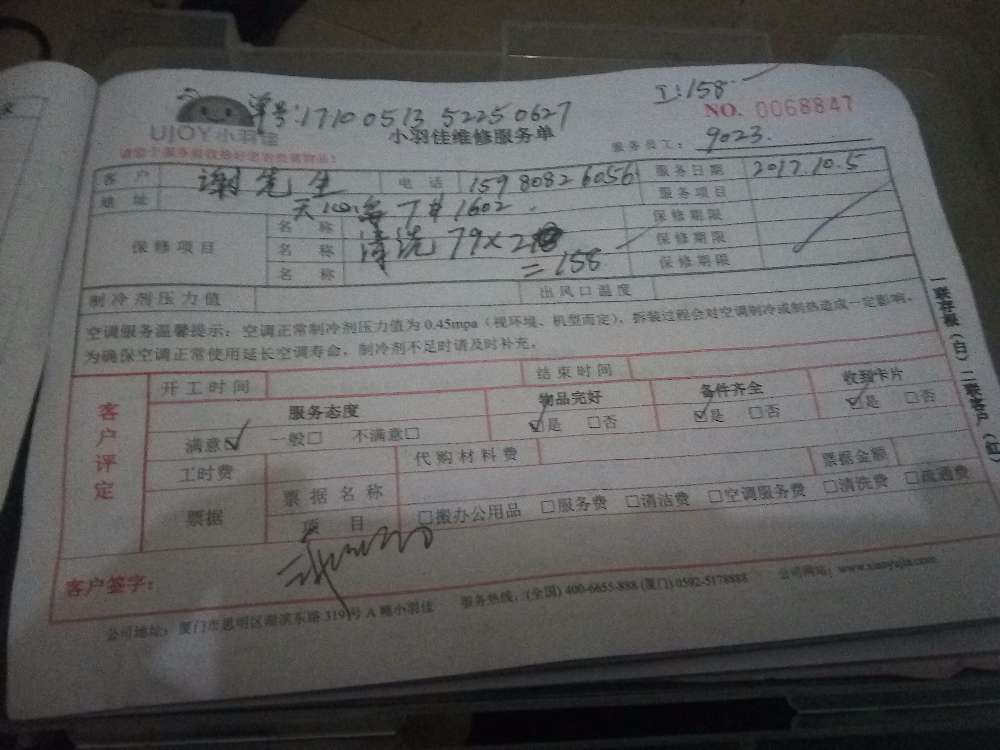 工:158
单号:17100513 52250627
NO. 0068847
UJOY小羽佳
小羽佳维修服务单
服务员工: 9023.
客户 谢先生 电话 15980826056 服务日期 2017.10.5
地址 1602 服务项目
保修项目
名称 保修期限
名称 清洗 79×2 保修期限
名称 =158 保修期限
制冷剂压力值 出风口温度
空调服务温馨提示:空调正常制冷剂压力值为0.45mpa(视环境、机型而定),拆装过程会对空调制冷或制热造成一定影响,
为确保空调正常使用延长空调寿命,制冷剂不足时请及时补充。
客户评定
开工时间 结束时间
服务态度 物品完好 备件齐全 收到卡片
满意☑ 一般□ 不满意□ ☑是 □否 ☑是 □否 ☑是 □否
工时费 代购材料费
票据 票据名称 票据金额
项目 □搬办公用品 □服务费 □清洁费 □空调服务费 □清洗费 □疏通费
客户签字:
公司地址:厦门市思明区湖滨东路319号A幢小羽佳 服务热线:(全国)400-6655-888 (厦门)0592-5178888 公司网站:www.xiaoyujia.com
一联存根(白)二联客户(红)